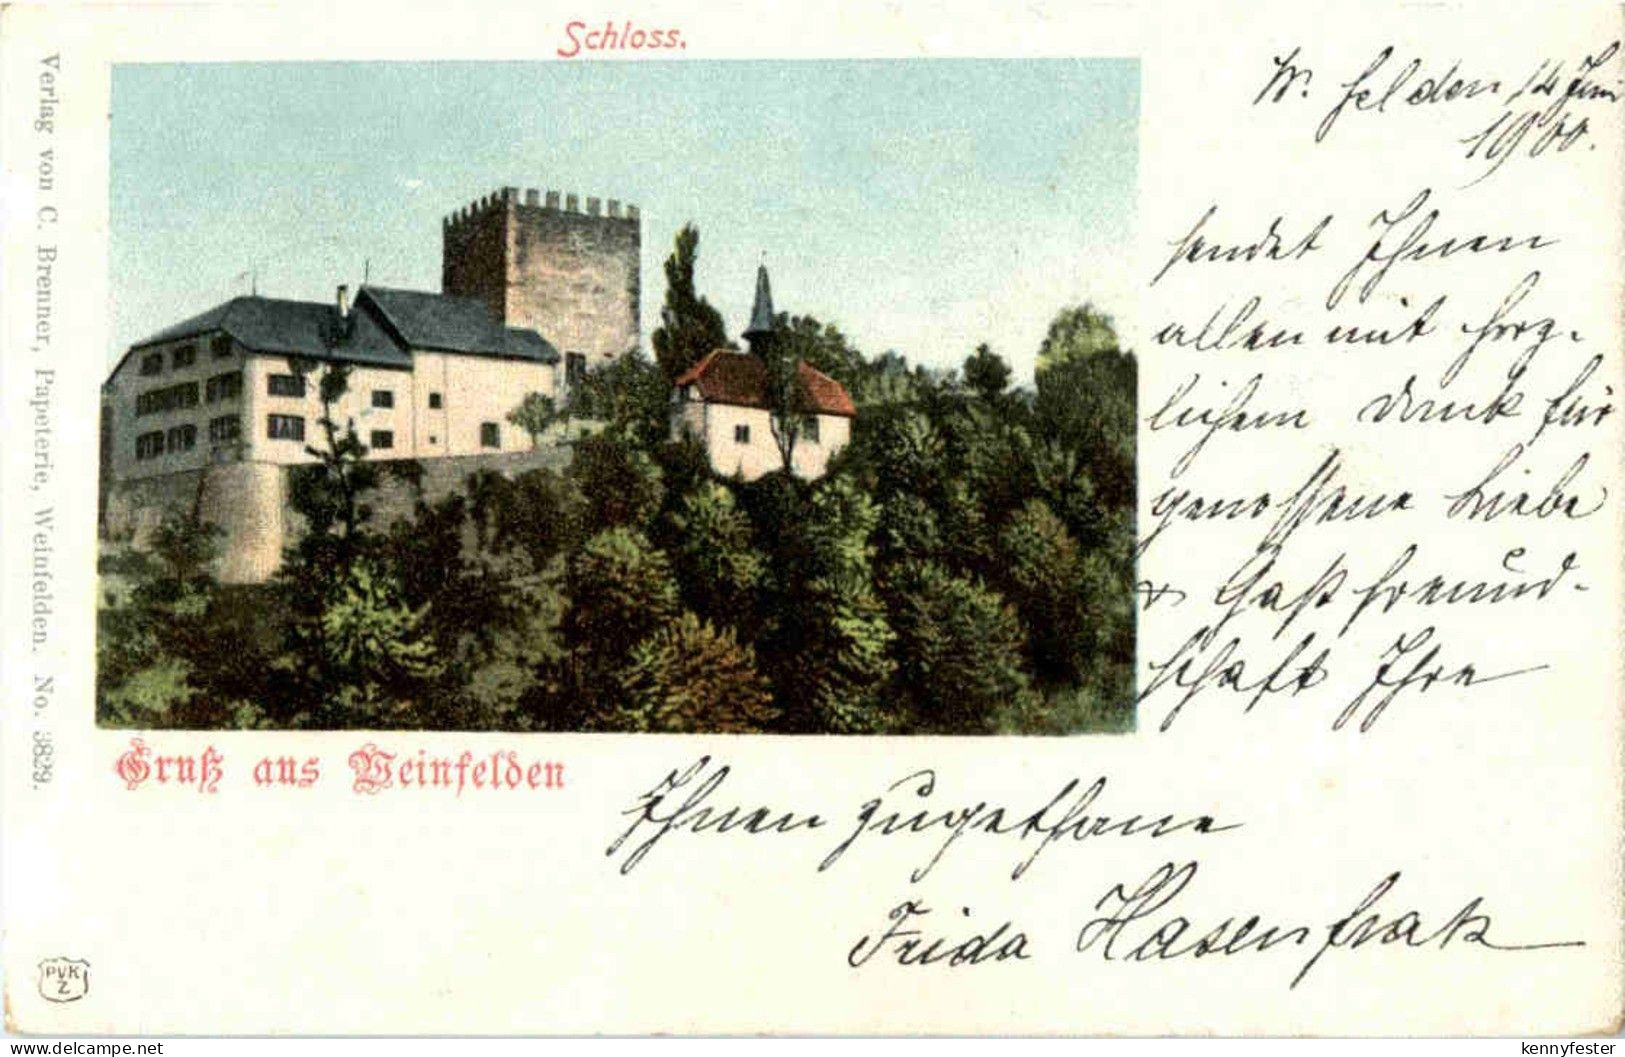 Schloss.
W. felden 14 Juni
1900.
sendet Ihnen
allen mit herz-
lichem Dank für
genossene Liebe
& Gastfreund-
schaft Ihre
Ihnen zugethane
Frida Hasenfratz
Gruß aus Weinfelden
Verlag von C. Brenner, Papeterie, Weinfelden. No. 3829.
PVK
Z
delcampe.net
kennyfester